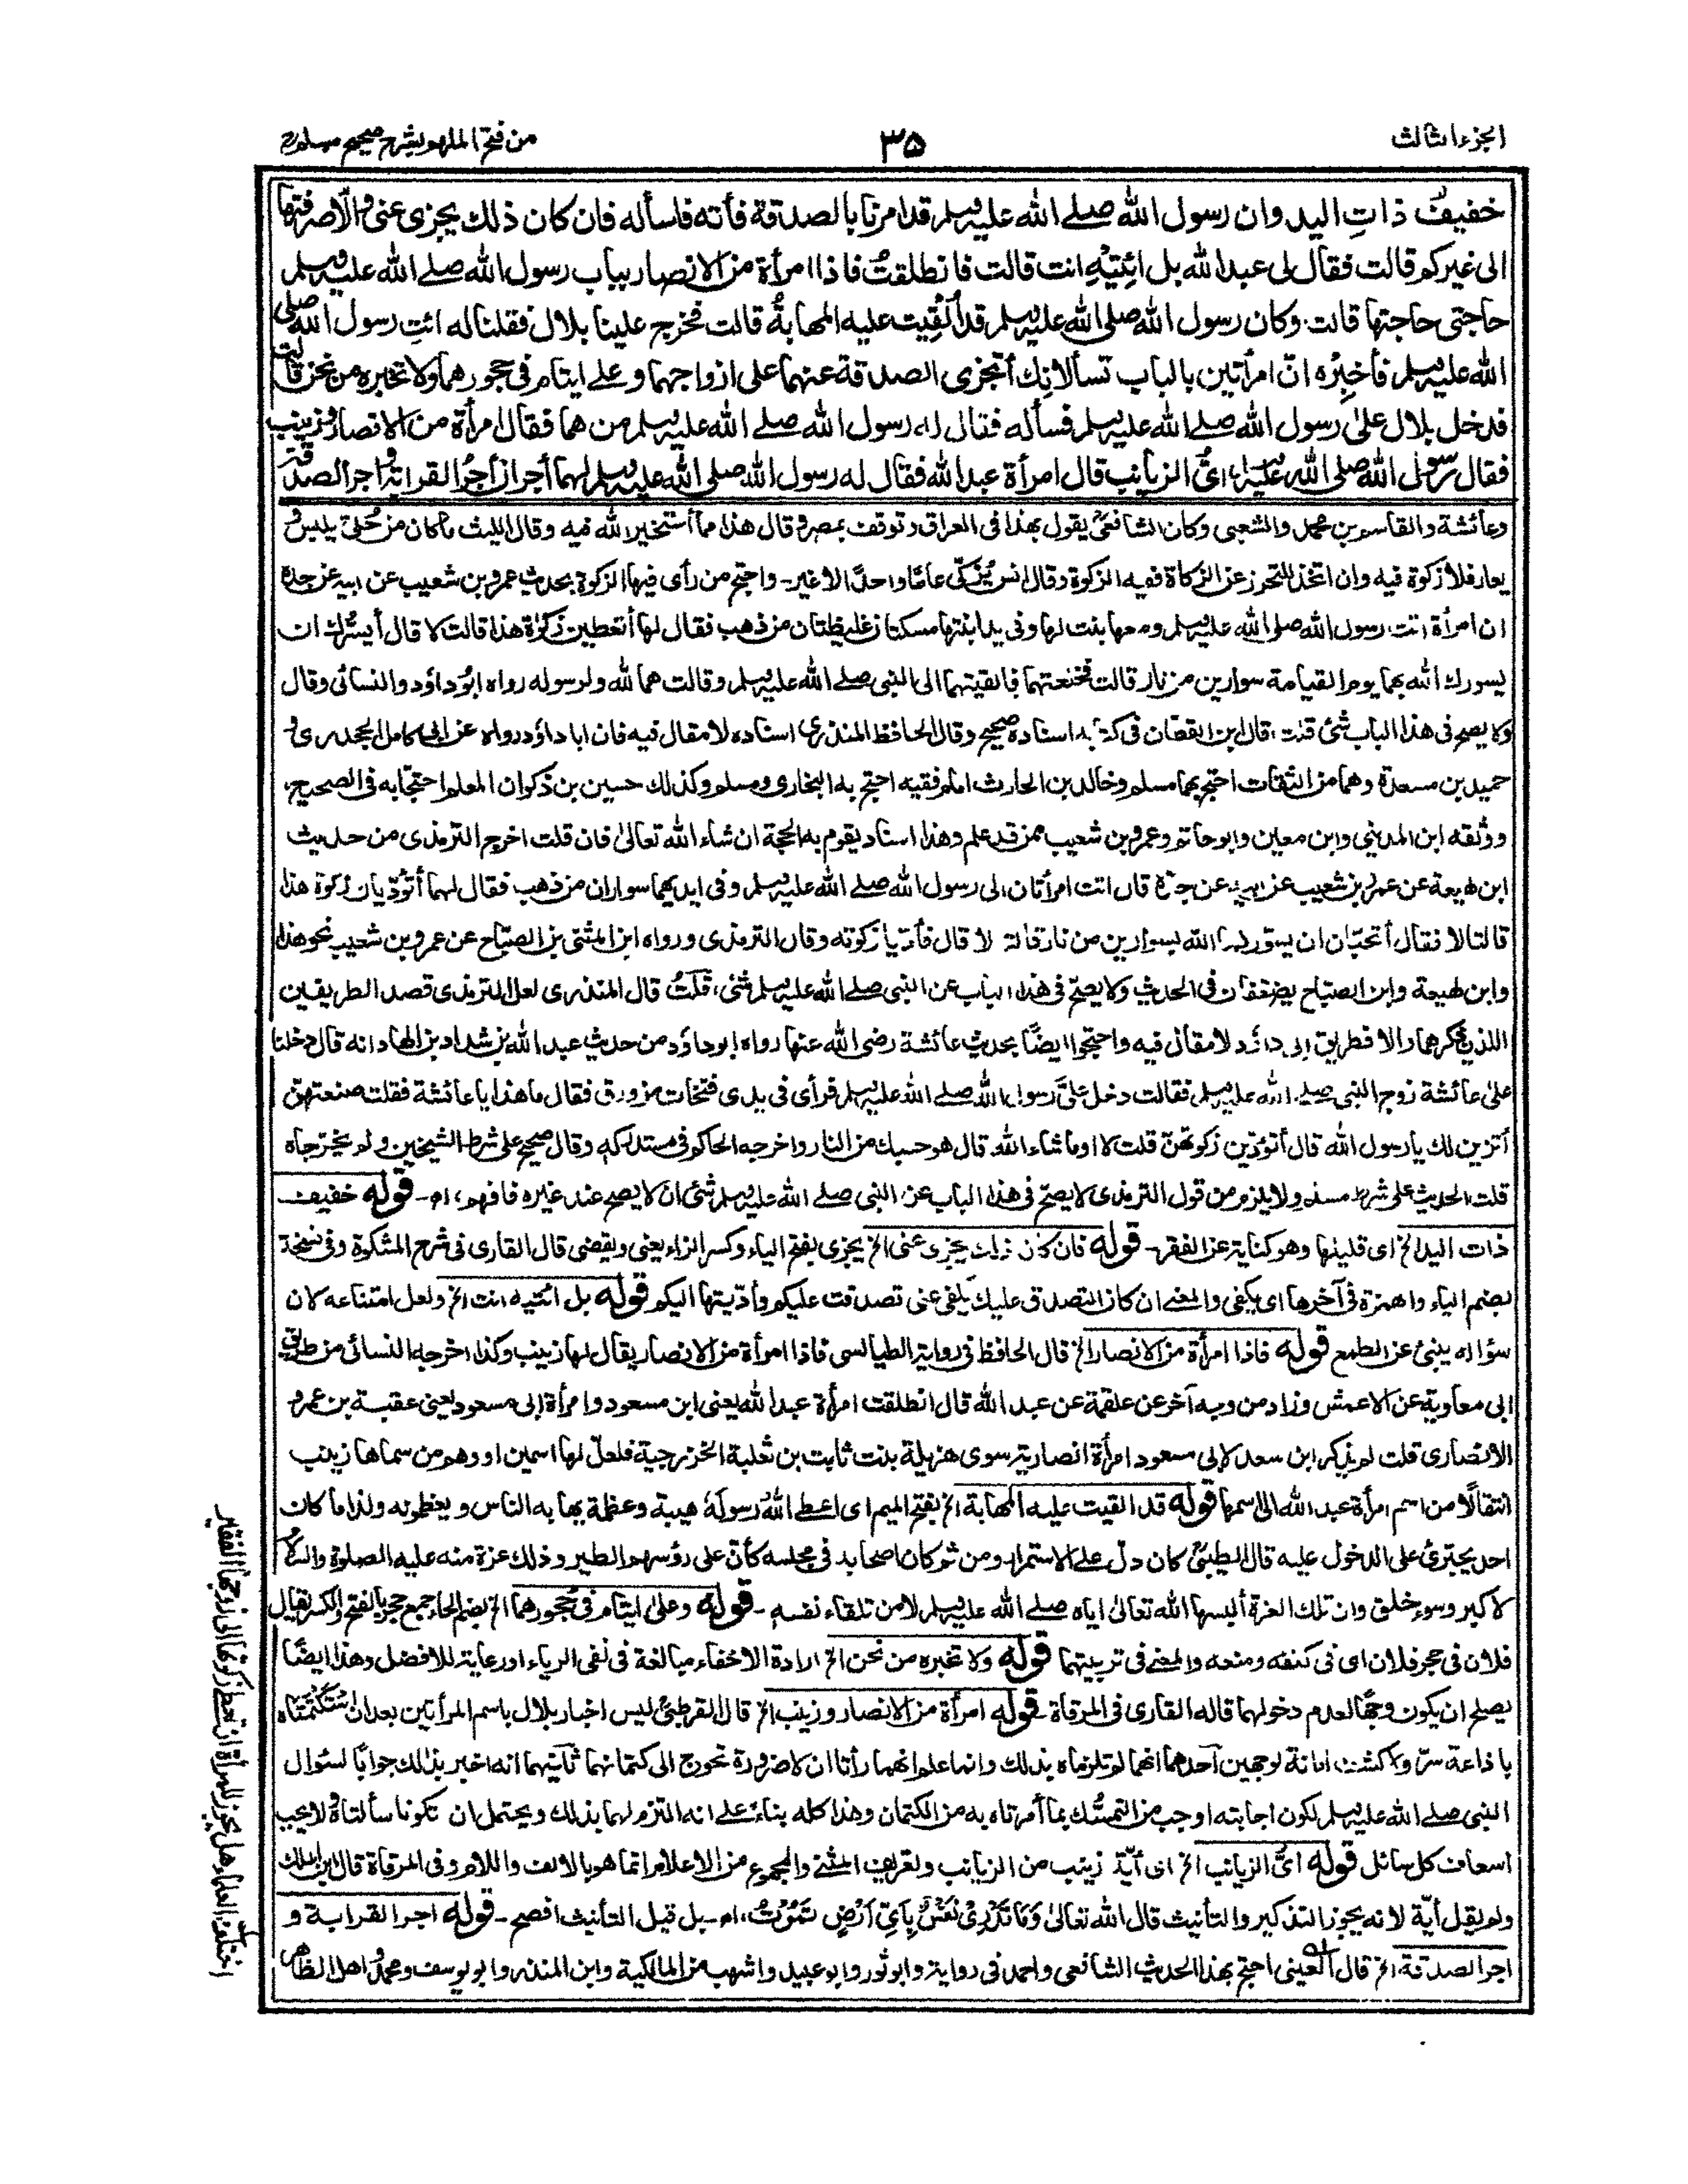 الجزء الثالث
٣٥
من فتح الملهم بشرح صحيح مسلم
خفيف ذاتِ اليد وان رسول الله صلے الله عليه وسلم قد امرنا بالصدقة فأته فاسأله فان كان ذلك يجزى عنى والّا صرفتها
الى غيركم قالت فقال لى عبد الله بل ائِتِيْهِ انت قالت فانطلقتُ فاذا امرأة من الانصار بباب رسول الله صلے الله عليه وسلم
حاجتى حاجتها قالت وكان رسول الله صلى الله عليه وسلم قد اُلْقِيت عليه المهابةُ قالت فخرج علينا بلال فقلنا له ائتِ رسول الله صلى
الله عليه وسلم فأخبِرْه انّ امرأتين بالباب تسألانِك أتجزى الصدقة عنهما على ازواجهما وعلے ايتام فى حجورهما ولا تخبره من نحن قالت
فدخل بلال علىٰ رسول الله صلے الله عليه وسلم فسأله فقال له رسول الله صلے الله عليه وسلم من هما فقال امرأة من الانصار وزينب
فقال رسول الله صلى الله عليه وسلم اىُّ الزيانب قال امرأة عبد الله فقال له رسول الله صلى الله عليه وسلم لهما أجران أجرُ القرابة واجر الصدقة
وعائشة والقاسم بن محمد والشعبى وكان الشافعىّ يقول بهذا فى العراق وتوقف بمصر وقال هذا مما أستخير الله فيه وقال الليث ما كان من حُلىّ يلبس و
يعار فلا زكوة فيه وان اتخذ للتحرز عن الزكاة ففيه الزكوة وقال انس يُزكّى عامًا واحدًا لا غير۔ واحتج من رأى فيها الزكوة بحديث عمرو بن شعيب عن ابيه عن جده
ان امرأة اتت رسول الله صلى الله عليه وسلم ومعها بنت لها وفى يد ابنتها مسكتان غليظتان من ذهب فقال لها أتعطين زكوٰة هذا قالت لا قال أيسُّرك ان
يسورك الله بهما يوم القيامة سوارين من نار قالت فخلعتهما فالقيتهما الى النبى صلے الله عليه وسلم وقالت هما لله ولرسوله رواه ابوداؤد والنسائى وقال
ولا يصح فى هذا الباب شئ قلت قال ابن القطان فى كتابه اسناده صحيح وقال الحافظ المنذرى اسناده لا مقال فيه فان اباداؤد رواه عن ابى كامل الجحدرى و
حميد بن مسعدة وهما من الثقات احتج بهما مسلم وخالد بن الحارث امام فقيه احتج به البخارى ومسلم وكذلك حسين بن ذكوان المعلم احتجّا به فى الصحيح،
ووثقه ابن المدينى وابن معين وابو حاتم وعمرو بن شعيب ممن قد علم وهذا اسناد يقوم به الحجة ان شاء الله تعالىٰ فان قلت اخرج الترمذى من حديث
ابن لهيعة عن عمرو بن شعيب عن ابيه عن جده قال اتت امرأتان الى رسول الله صلے الله عليه وسلم وفى ايديهما سواران من ذهب فقال لهما أتؤدّيان زكوة هذا
قالتا لا فقال أتحبّان ان يسوّركما الله بسوارين من نار قالتا لا قال فأديا زكوته وقال الترمذى ورواه ابن المثنى بن الصبّاح عن عمرو بن شعيب نحو هذا
وابن لهيعة وابن الصبّاح يضعّفان فى الحديث ولا يصحّ فى هذا الباب عن النبى صلے الله عليه وسلم شئ، قلتُ قال المنذرى لعل الترمذى قصد الطريقين
اللذين ذكرهما والا فطريق ابى داؤد لا مقال فيه واحتجوا ايضًا بحديث عائشة رضى الله عنها رواه ابوداؤد من حديث عبد الله بن شداد بن الهاد انه قال دخلنا
علىٰ عائشة زوج النبى صلے الله عليه وسلم فقالت دخل علىَّ رسول الله صلے الله عليه وسلم فرأى فى يدى فتخات من ورق فقال ما هذا يا عائشة فقلت صنعتهن
أتزين لك يا رسول الله قال أتؤدّين زكوتهنّ قلت لا او ما شاء الله قال هو حسبك من النار واخرجه الحاكم فى مستدركه وقال صحيح على شرط الشيخين ولم يخرجاه
قلت الحديث على شرط مسلم ولا يلزم من قول الترمذى لا يصحّ فى هذا الباب عن النبى صلے الله عليه وسلم شئ ان لا يصح عند غيره فافهم، اه۔ قوله خفيف
ذات اليد الخ اى قليلها وهو كناية عن الفقر۔ قوله فان كان ذلك يجزى عنى الخ يجزى بفتح الياء وكسر الزاء يعنى ويقضى قال القارى فى شرح المشكوة وفى نسخة
بضم الياء والهمزة فى آخرها اى يكفى والمعنى ان كان التصدق عليك يكفى عنى تصدقت عليكم وأدّيتها اليكم قوله بل ائتيه انت الخ ولعل امتناعه لان
سؤاله ينبئ عن الطمع قوله فاذا امرأة من الانصار الخ قال الحافظ فى رواية الطيالسى فاذا امرأة من الانصار يقال لها زينب وكذا اخرجه النسائى من طريق
ابى معاوية عن الاعمش وزاد من وجه آخر عن علقمة عن عبد الله قال انطلقت امرأة عبد الله يعنى ابن مسعود وامرأة ابى مسعود يعنى عقبة بن عمرو
الانصارى قلت لم يذكر ابن سعد لابى مسعود امرأة انصارية سوى هزيلة بنت ثابت بن ثعلبة الخزرجية فلعلّ لها اسمين او وهم من سماها زينب
انتقالًا من اسم امرأة عبد الله الى اسمها قوله قد القيت عليه المهابة الخ بفتح الميم اى اعطى اللهُ رسولَهُ هيبة وعظمة يهابه الناس ويعظمونه ولذا ما كان
احد يجترئ على الدخول عليه قال الطيبىّ كان دلّ على الاستمرار ومن ثم كان اصحابه فى مجلسه كأنّ على رؤسهم الطير وذلك عزة منه عليه الصلوة والسلام
لا كبر وسوء خلق وان تلك العزة ألبسها الله تعالىٰ اياه صلے الله عليه وسلم لا من تلقاء نفسه ۔ قوله وعلىٰ ايتام فى حجورهما الخ بضم الحاء جمع حجر بالفتح والكسر يقال
فلان فى حجر فلان اى فى كنفه ومنعه والمعنى فى تربيتهما قوله ولا تخبره من نحن الخ ارادة الاخفاء مبالغة فى نفى الرياء او رعاية للافضل وهذا ايضًا
يصلح ان يكون وجهًا لعدم دخولهما قاله القارى فى المرقاة قوله امرأة من الانصار وزينب الخ قال القرطبىّ ليس اخبار بلال باسم المرأتين بعد ان استكتمتاه
باذاعة سرّ ولا كشف امانة لوجهين أحدهما انهما لم تلزماه بذلك وانما علم انهما رأتا ان لا ضرورة تحوج الى كتمانهما ثانيهما انه اخبر بذٰلك جوابًا لسؤال
النبى صلے الله عليه وسلم لكون اجابته اوجب من التمسّك بما أمرتاه به من الكتمان وهذا كله بناءً علے انه التزم لهما بذلك ويحتمل ان تكونا سألتاه ولا يجب
اسعاف كل سائل قوله اىُّ الزيانب الخ اى أيّة زينب من الزيانب وتعريف المثنى والمجموع من الاعلام انما هو بالالف واللام وفى المرقاة قال ابن الملك
ولم يقل أيّة لانه يجوز التذكير والتأنيث قال الله تعالىٰ وَمَا تَدْرِىْ نَفْسٌ بِاَىِّ اَرْضٍ تَمُوْتُ، اه۔ بل قيل التأنيث افصح ۔ قوله اجر القرابة و
اجر الصدقة الخ قال العينى احتج بهذا الحديث الشافعى واحمد فى رواية وابو ثور وابو عبيد واشهب من المالكية وابن المنذر وابو يوسف ومحمد واهل الظاهر
اختلف العلماء هل يجوز للمرأة ان تعطى زكوتها الى زوجها الفقير